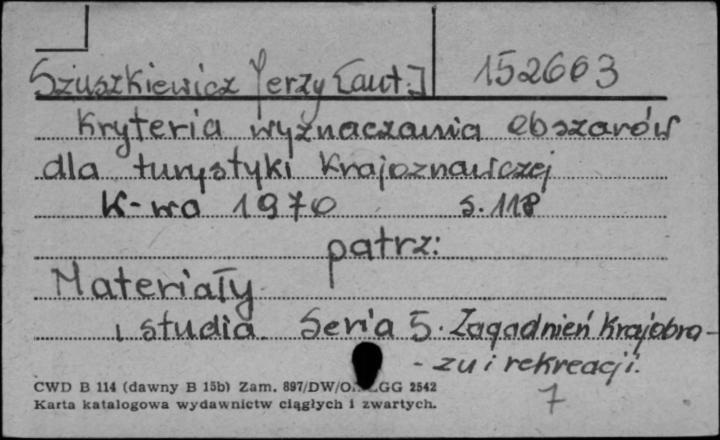 Szuszkiewicz Jerzy [aut.] 152663
Kryteria wyznaczania obszarów
dla turystyki krajoznawczej
K-wa 1970 s. 118
patrz:
Materiały
i studia Seria 5. Zagadnień Krajobra-
- zu i rekreacji.
CWD B 114 (dawny B 15b) Zam. 897/DW/O. GG 2542
Karta katalogowa wydawnictw ciągłych i zwartych.
7